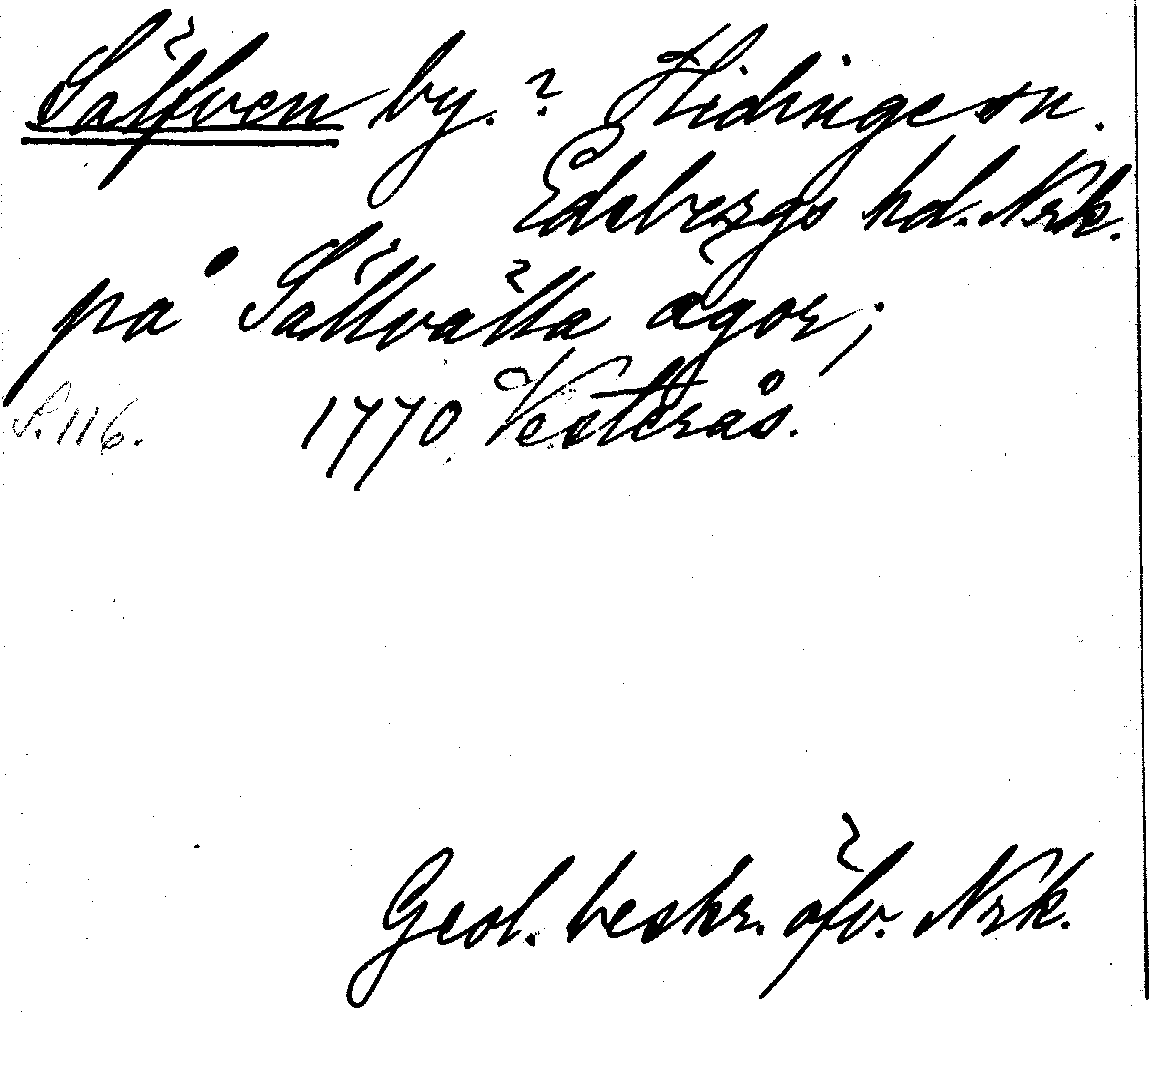 Sälfven by.? Hidinge sn.
Edsbergs hd. Nrk.
på Sällvätta ägor;
S. 116. 1770 Vesterås.
Geol. beskr. öfv. Nrk.